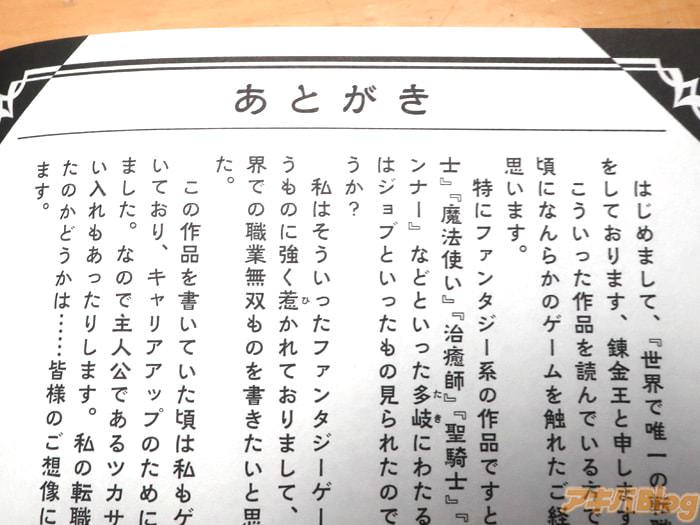 あとがき
はじめまして、『世界で唯一の
をしております、錬金王と申します
こういった作品を読んでいる方
頃になんらかのゲームを触れたご経
思います。
特にファンタジー系の作品ですと
士』『魔法使い』『治癒師』『聖騎士』『
ンナー』などといった多岐にわたる
たき
はジョブといったもの見られたので
うか？
私はそういったファンタジーゲー
うものに強く惹かれておりまして、
ひ
界での職業無双ものを書きたいと思
た。
この作品を書いていた頃は私もゲ
いており、キャリアアップのために
ました。なので主人公であるツカサ
い入れもあったりします。私の転職
たのかどうかは……皆様のご想像に
ます。
アキバBlog